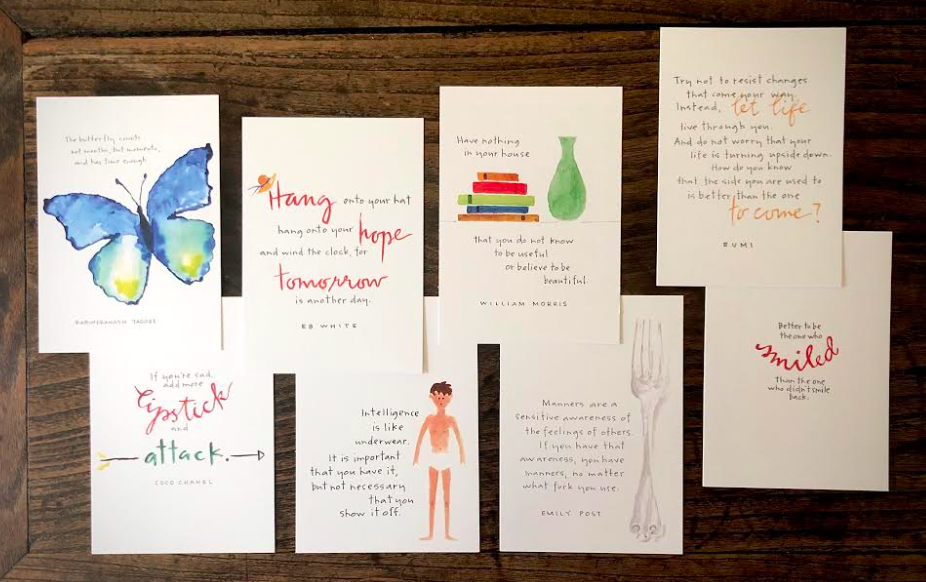 The butterfly counts
not months, but moments,
and has time enough
RABINDRANATH TAGORE
Hang onto your hat
hang onto your hope
and wind the clock, for
tomorrow
is another day.
EB WHITE
Have nothing
in your house
that you do not know
to be useful
or believe to be
beautiful.
WILLIAM MORRIS
Try not to resist changes
that come your way.
Instead, let life
live through you.
And do not worry that your
life is turning upside down.
How do you know
that the side you are used to
is better than the one
to come?
RUMI
If you're sad,
add more
lipstick
and
attack.
COCO CHANEL
Intelligence
is like
underwear.
It is important
that you have it,
but not necessary
that you
show it off.
Manners are a
sensitive awareness of
the feelings of others.
If you have that
awareness, you have
manners, no matter
what fork you use.
EMILY POST
Better to be
the one who
smiled
Than the one
who didn't smile
back.